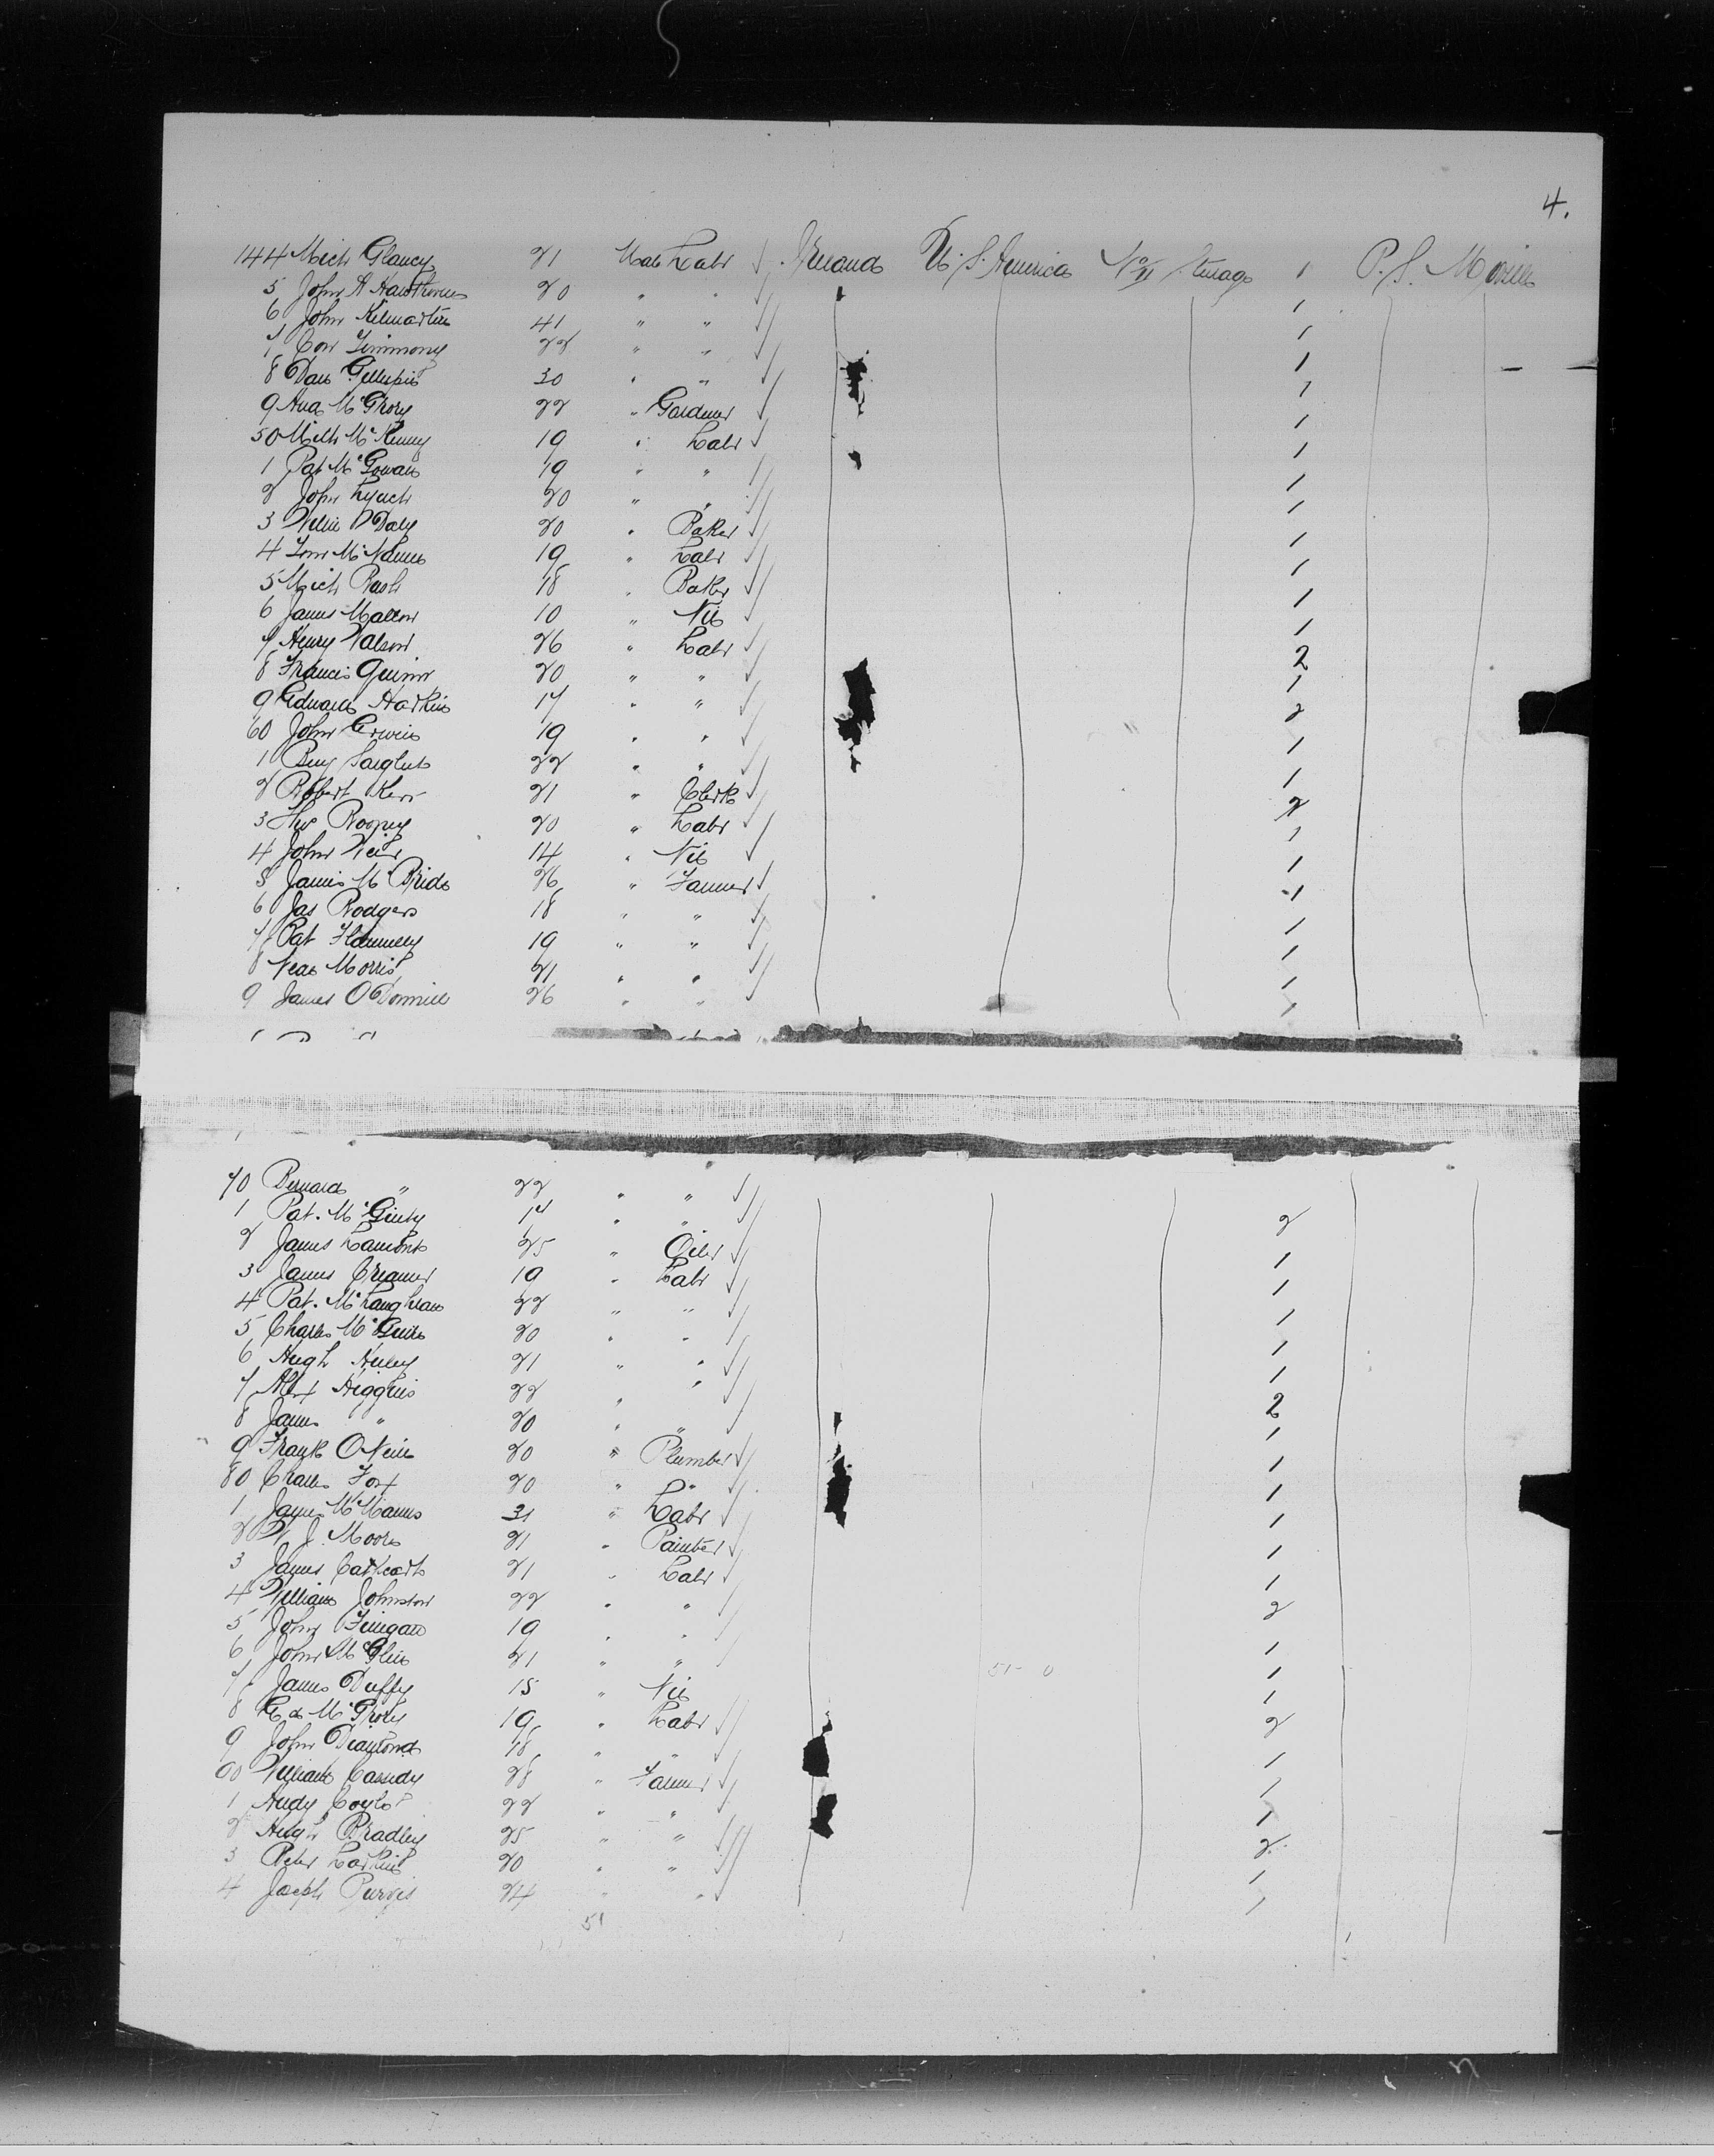 4.
144 Mich Glancy 21 Male Labr Ireland U.S. America No 11 Steerage 1 P. S.
5 John A Hawthorne 20 " " 1
6 John Kilmartin 41 " " 1
7 Con Timmony 22 " " 1
8 Dan Gillespie 30 " " 1
9 McGrory 22 " Gardener 1
50 McKenny 19 " Labr 1
1 Pat McGowan 19 " " 1
2 John Lynch 20 " " 1
3 Willie Daly 20 " Baker 1
4 Tom McManus 19 " Labr 1
5 Mich Rush 18 " Baker 1
6 James Mallon 10 " Nil 1
7 Henry Watson 26 " Labr 2
8 Francis Quinn 20 " " 1
9 Edward Harkins 17 " " 2
60 John Erwin 19 " " 1
1 22 " " 1
2 Robert Kerr 21 " Clerk 2
3 Thos Rooney 20 " Labr 1
4 John Weir 14 " Nil 1
5 James McBride 26 " Farmer 1
6 Jas Rodgers 18 " " 1
7 Pat Flannelly 19 " " 1
8 Neal Morris 21 " " 1
9 James O'Donnell 26 " " 1
70 Bernard " 22 " "
1 Pat. McGinty 17 " " 2
2 James Lamont 25 " Oiler 1
3 James Creamer 19 " Labr 1
4 Pat. McLaughran 22 " " 1
5 Charles McGuire 20 " " 1
6 Hugh 21 " " 1
7 Alex Higgins 22 " " 2
8 James " 20 " " 1
9 Frank O'Neill 20 " Plumber 1
80 Charles Fox 20 " " 1
1 James McManus 31 " Labr 1
2 J. Moore 21 " Painter 1
3 James Cathcart 21 " Labr 1
4 William Johnston 22 " " 2
5 John Finegan 19 " " 1
6 John McGlin 21 " " 1
7 James Duffy 15 " Nil 1
8 Ed McGrory 19 " Labr 2
9 John Diamond 18 " " 1
90 William Cassidy 28 " Farmer 1
1 Andy Coyle 22 " " 1
2 Hugh Bradley 25 " " 2
3 Peter Larkin 20 " " 1
4 Joseph Purvis 24 " " 1
51